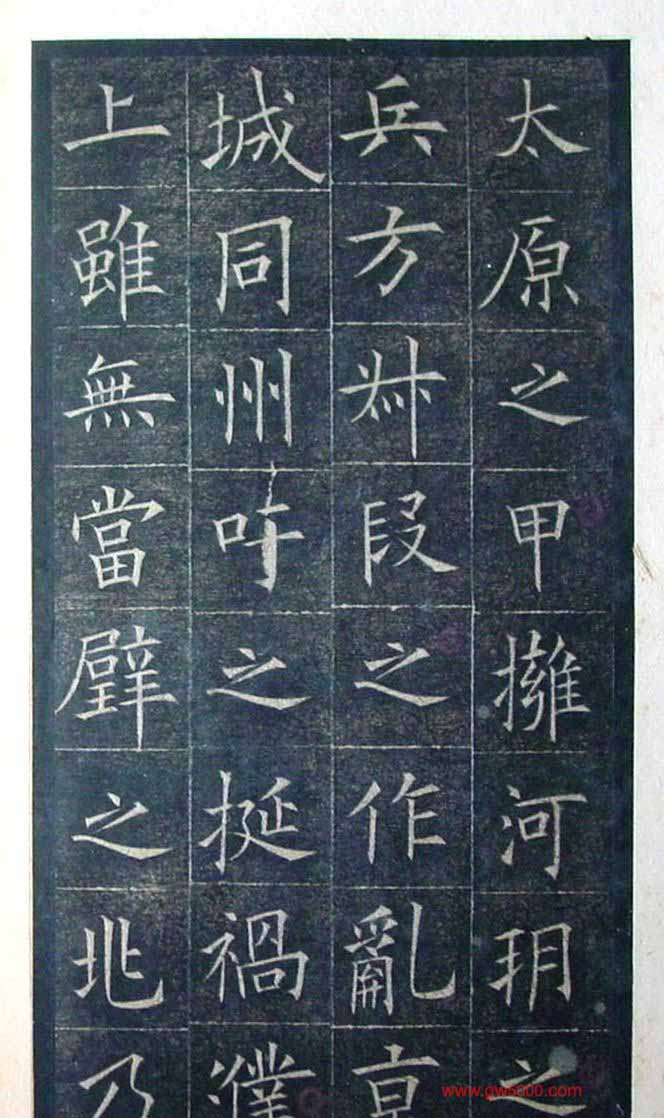 太原之甲擁河朔之
兵方叔段之作亂京
城同州吁之挺禍濮
上雖無當璧之兆乃
www.gw5000.com